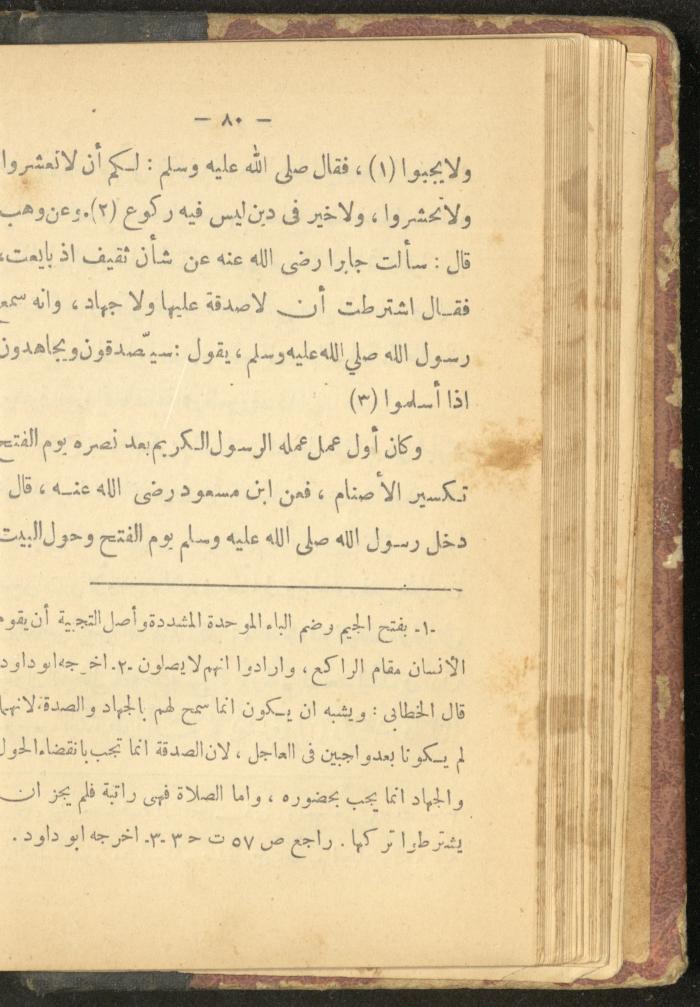 — ٨٠ —
ولا يجبوا (١) ، فقال صلى الله عليه وسلم : لكم أن لا تعشروا
ولا تحشروا ، ولا خير فى دين ليس فيه ركوع (٢). وعن وهب
قال : سألت جابرا رضى الله عنه عن شأن ثقيف اذ بايعت ،
فقال اشترطت أن لا صدقة عليها ولا جهاد ، وانه سمع
رسول الله صلي الله عليه وسلم ، يقول : سيتّصدقون ويجاهدون
اذا أسلموا (٣)
وكان أول عمل عمله الرسول الكريم بعد نصره يوم الفتح
تكسير الأصنام ، فعن ابن مسعود رضى الله عنه ، قال
دخل رسول الله صلى الله عليه وسلم يوم الفتح وحول البيت
-١- بفتح الجيم وضم الباء الموحدة المشددة وأصل التجبية أن يقوم
الأنسان مقام الراكع ، وارادوا انهم لا يصلون -٢- اخرجه ابو داود
قال الخطابى : ويشبه ان يكون انما سمح لهم بالجهاد والصدقة لانهما
لم يكونا بعد واجبين فى العاجل ، لان الصدقة انما تجب بانقضاء الحول
والجهاد انما يجب بحضوره ، واما الصلاة فهى راتبة فلم يجز ان
يشترطوا تركها . راجع ص ٥٧ ت ح ٣ -٣- اخرجه ابو داود .